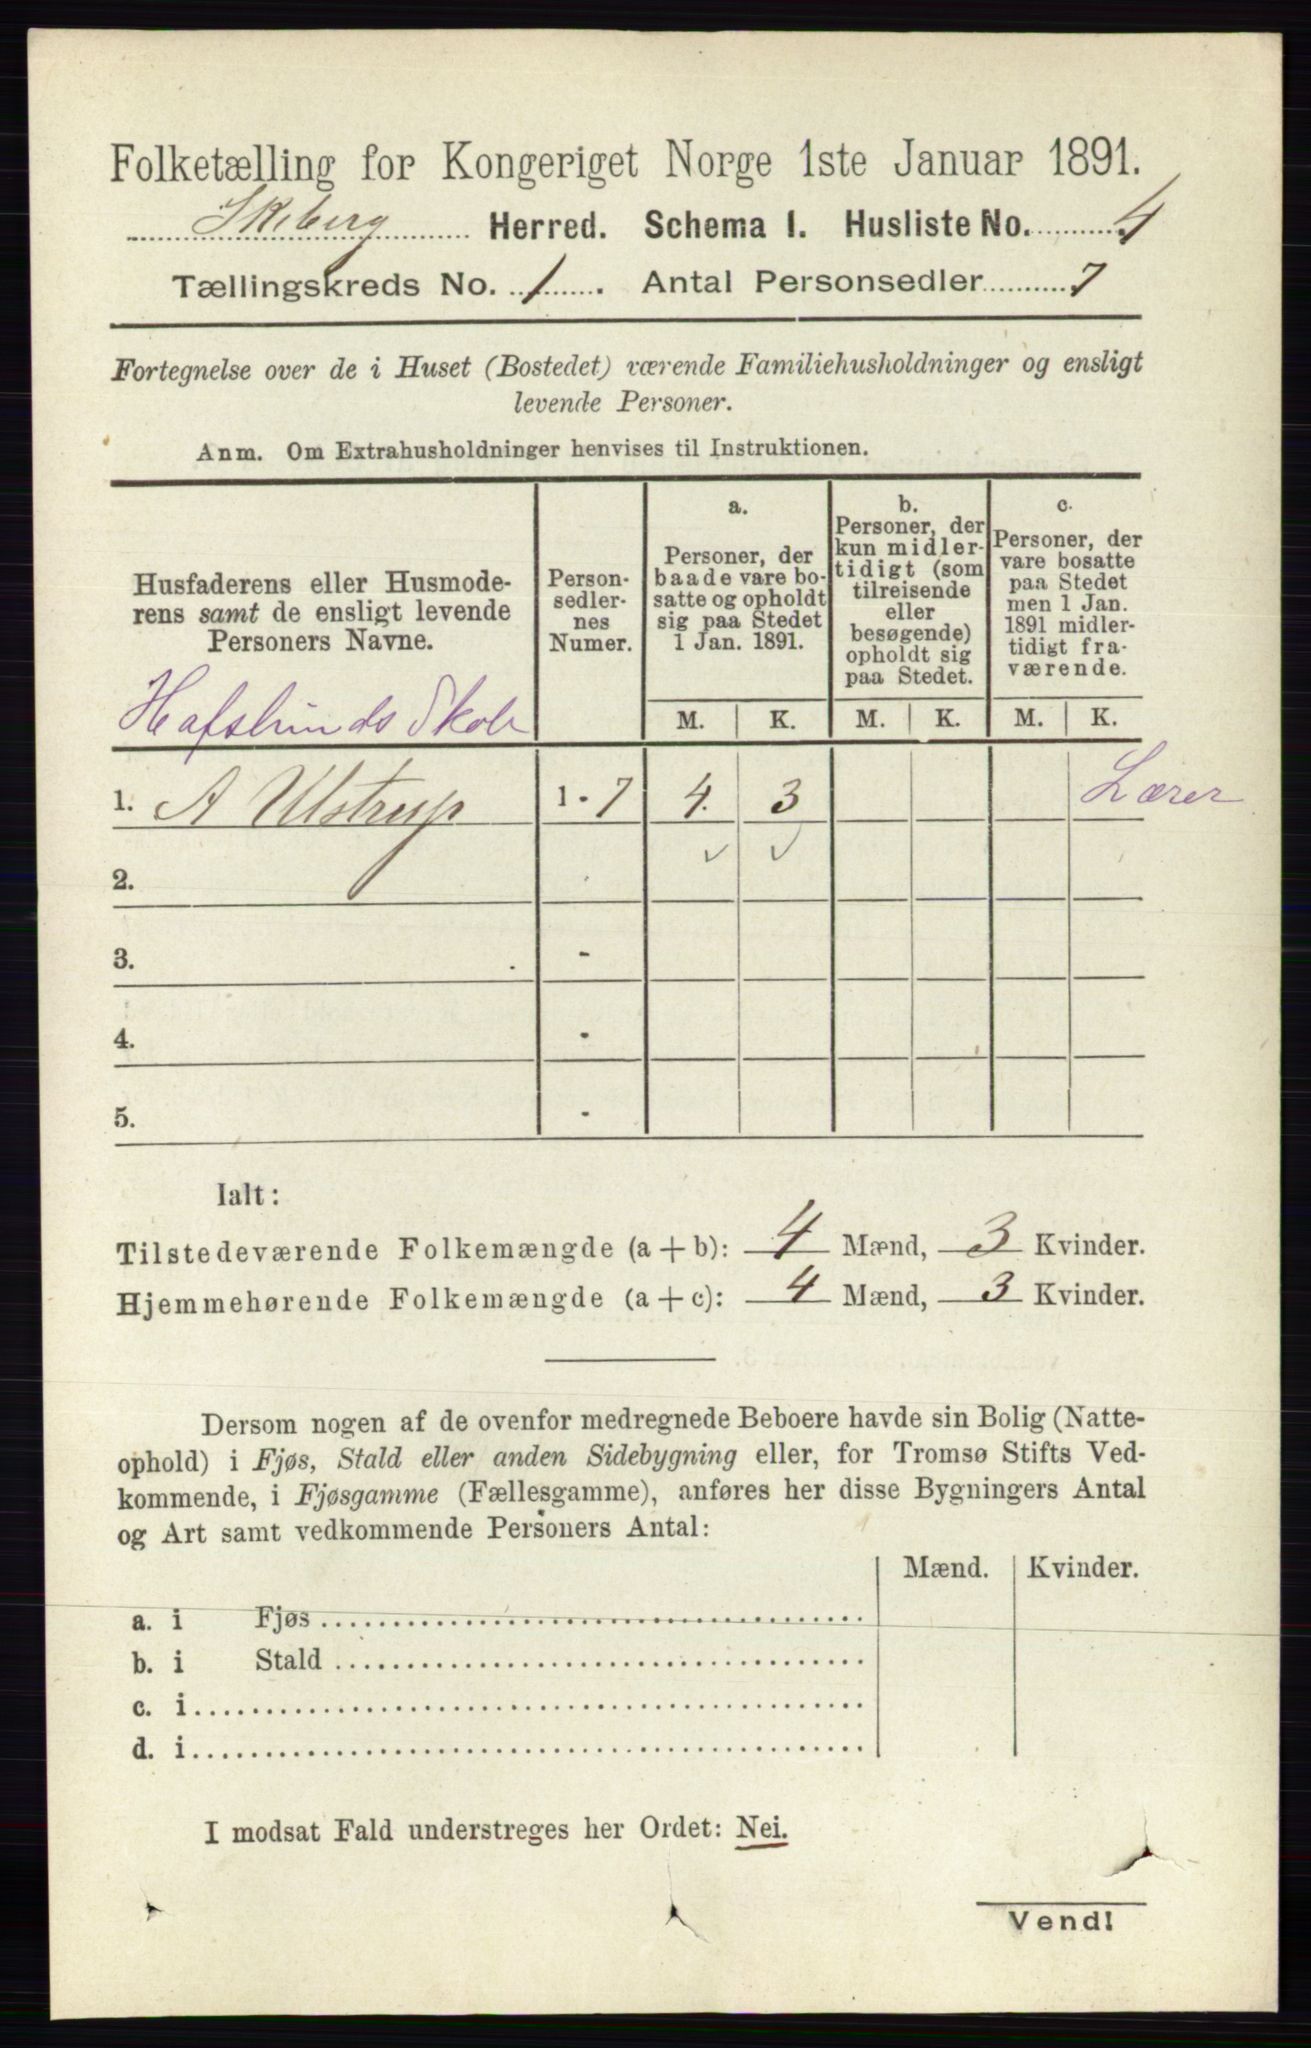 Folketælling for Kongeriget Norge 1ste Januar 1891.
Skeberg Herred. Schema I. Husliste No. 4
Tællingskreds No. 1. Antal Personsedler 7
Fortegnelse over de i Huset (Bostedet) værende Familiehusholdninger og ensligt
levende Personer.
Anm. Om Extrahusholdninger henvises til Instruktionen.
Husfaderens eller Husmode-
rens samt de ensligt levende
Personers Navne.
Person-
sedler-
nes
Numer.
a.
Personer, der
baade vare bo-
satte og opholdt
sig paa Stedet
1 Jan. 1891.
b.
Personer, der
kun midler-
tidigt (som
tilreisende
eller
besøgende)
opholdt sig
paa Stedet.
c.
Personer, der
vare bosatte
paa Stedet
men 1 Jan.
1891 midler-
tidigt fra-
værende.
Hafslunds Skole
M. K. M. K. M. K.
1. A Ulstrup 1 - 7 4. 3 Lærer
2.
3. -
4. -
5. -
Ialt:
Tilstedeværende Folkemængde (a + b): 4 Mænd, 3 Kvinder.
Hjemmehørende Folkemængde (a + c): 4 Mænd, 3 Kvinder.
Dersom nogen af de ovenfor medregnede Beboere havde sin Bolig (Natte-
ophold) i Fjøs, Stald eller anden Sidebygning eller, for Tromsø Stifts Ved-
kommende, i Fjøsgamme (Fællesgamme), anføres her disse Bygningers Antal
og Art samt vedkommende Personers Antal:
Mænd. Kvinder.
a. i Fjøs
b. i Stald
c. i
d. i
I modsat Fald understreges her Ordet: Nei.
Vend!